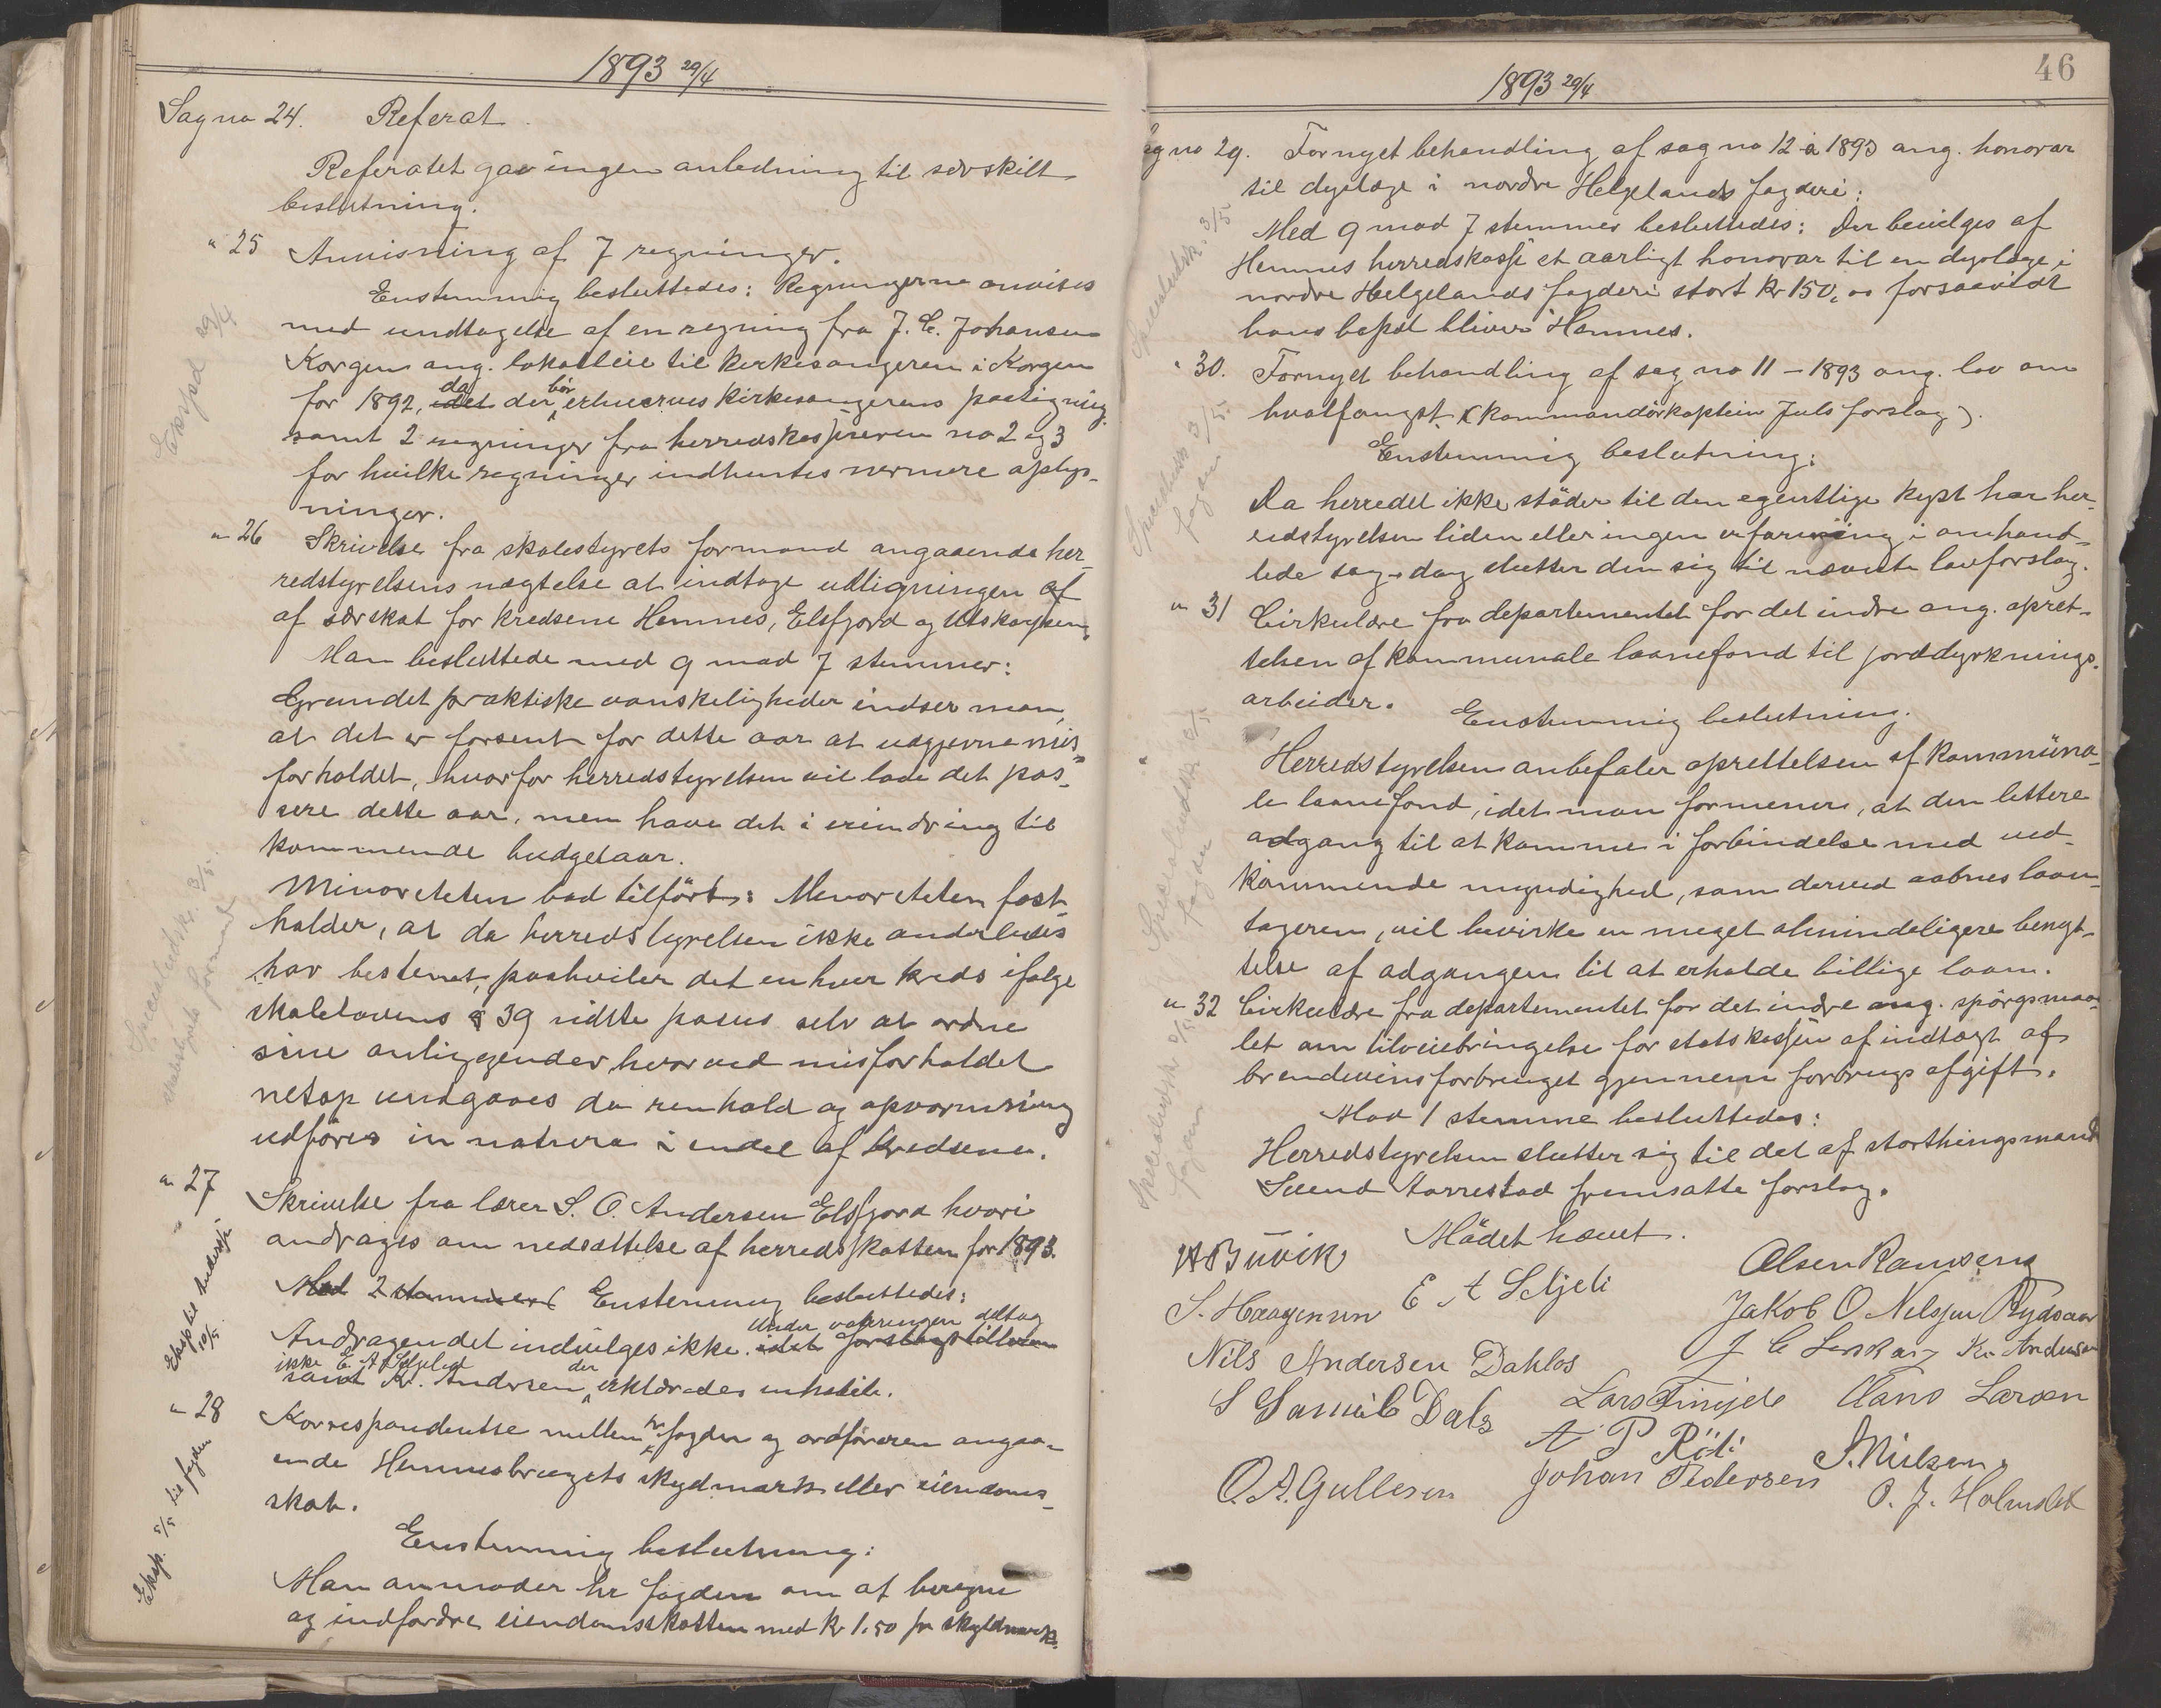 1893 29/4
Sag no 24. Referat.
Referatet gav ingen anledning til særskilt
beslutning.
" 25 Anvisning af 7 regninger.
Enstemmig besluttedes: Regningerne anvises
med undtagelse af en regning fra J. C. Johansen
Korgen ang. lokalleie til kirkesangeren i Korgen
for 1892, idet da der bør erhverves kirkesangerens paategning,
samt 2 regninger fra herredskassereren no 2 og 3
for hvilke regninger indhentes nærmere oplys-
ninger.
Exsped 29/4
" 26 Skrivelse fra skolestyrets formand angaaende her-
redstyrelsens nægtelse at indtage udligningen af
af særskat for kredsene Hemnes, Elsfjord og Utskarpen.
Man besluttede med 9 mod 7 stemmer:
Grundet praktiske vanskeligheder indser man,
at det er forsent for dette aar at udgjevne mis-
forholdet, hvorfor herredstyrelsen vil lade det pas-
sere dette aar, men have det i erindring til
kommende budgetaar.
Minoriteten bad tilført: Minoriteten fast-
holder, at da herredstyrelsen ikke anderledes
har bestemt, paahviler det enhver kreds ifølge
skolelovens § 39 sidste passus selv at ordne
sine anliggender, hvorved misforholdet
netop undgaaes da renhold og opvarmning
udføres in natura i endel af kredsene.
skolestyrets formand
" 27 Skrivelse fra lærer S. O. Andersen Elsfjord hvori
andrages om nedsættelse af herredsskatten for 1893.
Mod 2 stemmer Enstemmig besluttedes:
Under voteringen deltog
Andragendet indvilges ikke. idet forslagstilleren
ikke E. A. Seljeli
samt Kr. Andersen der erklæredes inhabile.
Eksp til Andersen 10/5
" 28 Korrespondentse mellem hr. fogden og ordføreren angaa-
ende Hemnesbrugets skyldmark eller eiendoms-
skat.
Enstemmig beslutning:
Man anmoder hr fogden om at beregne
og indfordre eiendomsskatten med kr 1.50 pr skyldmark.
Eksp. 5/5 til fogden
46
1893 29/4
Sag no 29. Fornyet behandling af sag no 12 a 1893 ang. honorar
til dyrlæge i nordre Helgelands fogderi:
Med 9 mod 7 stemmer besluttedes: Der bevilges af
Hemnes herredskasse et aarligt honorar til en dyrlæge i
nordre Helgelands fogderi stort kr 150,00 forsaavidt
hans bopæl bliver Hemnes.
" 30. Fornyet behandling af sag no 11 – 1893 ang. lov om
hvalfangst. (kommandörkaptein Juls forslag).
Enstemmig beslutning:
Da herredet ikke støder til den egentlige kyst har her-
redstyrelsen liden eller ingen erfaring i omhand-
lede sag, dog slutter den sig til nævnte lovforslag.
" 31 Cirkulære fra departementet for det indre ang. opret-
telsen af kommunale laanefond til jorddyrknings-
arbeider.
Enstemmig beslutning.
Herredstyrelsen anbefaler oprettelsen af kommuna-
le laanefond, idet man formener, at den lettere
adgang til at komme i forbindelse med ved-
kommende myndighed, som derved aabnes laan-
tageren, vil bevirke en meget almindeligere benyt-
telse af adgangen til at erholde billige laan.
" 32 Cirkulære fra departementet for det indre ang. spörgsmaa-
let om tilveiebringelse for statskassen af indtægt af
brændevinsforbruget gjennem forbrugsafgift.
Mod 1 stemme besluttedes:
Herredstyrelsen slutter sig til det af storthingsmand
Svend Aarrestad fremsatte forslag.
Mödet hævet.
Buvik
Olsen Ranseng
E A Seljeli
S. Haagensen
Jakob O. Nilssen Bydsaar
Nils Andersen Dahlos
J C Kr. Andersen
S Samuels Dals
Lars Hans Larsen
A P Röli
S. Nielsen
O. A. Gullesen
Johan Pedersen
O. J. Holmslet